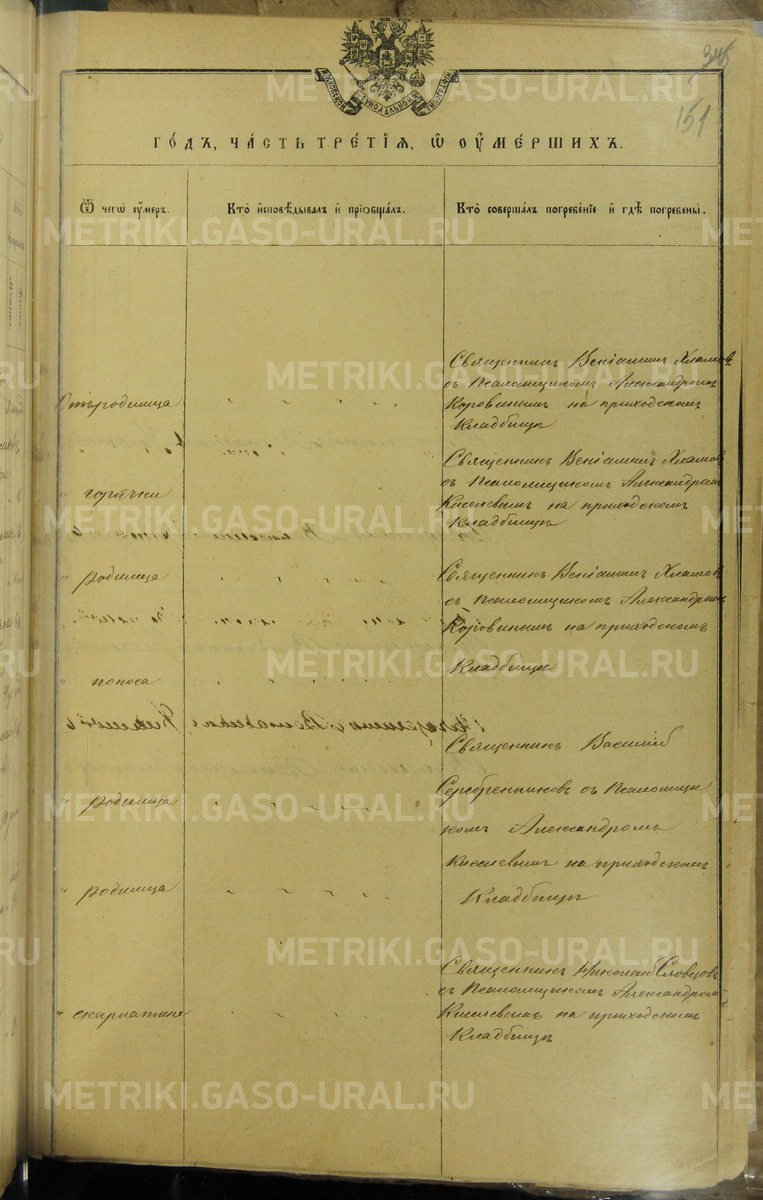 151
МОСКОВСКОЙ СѴНОДАЛЬНОЙ ТИПОГРАФІИ
ГОДЪ, ЧАСТЬ ТРЕТІЯ, Ѡ ОУМЕРШИХЪ.
Ѿ чегѡ оумеръ.
Кто исповѣдывалъ и пріобщалъ.
Кто совершалъ погребеніе и гдѣ погребены.
Священникъ Веніаминъ Хламовъ
съ Псаломщикомъ Александромъ
Отъ родимца
Коровинымъ на приходскомъ
Кладбищѣ
Священникъ Веніаминъ Хламовъ
съ Псаломщикомъ Александромъ
" горячки
Киселевымъ на приходскомъ
Кладбищѣ
" родимца
Священникъ Веніаминъ Хламовъ
съ Псаломщикомъ Александромъ
Коровинымъ на приходскомъ
Кладбищѣ
" поноса
Священникъ Василій
" родимца
Серебренниковъ съ Псаломщи
комъ Александромъ
Киселевымъ на приходскомъ
" родимца
Кладбищѣ
Священникъ Николай Словцовъ
съ Псаломщикомъ Александромъ
" скарлатины
Киселевымъ на приходскомъ
Кладбищѣ
METRIKI.GASO-URAL.RU